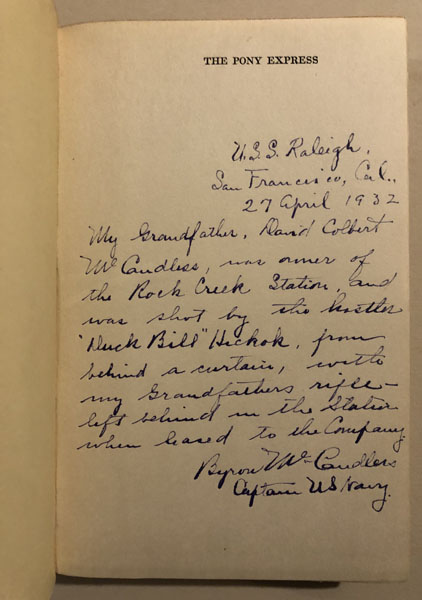 THE PONY EXPRESS
U.S.S. Raleigh,
San Francisco, Cal.,
27 April 1932
My Grandfather, David Colbert
McCandless, was owner of
the Rock Creek Station, and
was shot by the hostler
"Duck Bill" Hickok, from
behind a curtain, with
my Grandfathers rifle—
left behind in the Station
when leased to the Company.
Byron McCandless
Captain US Navy.